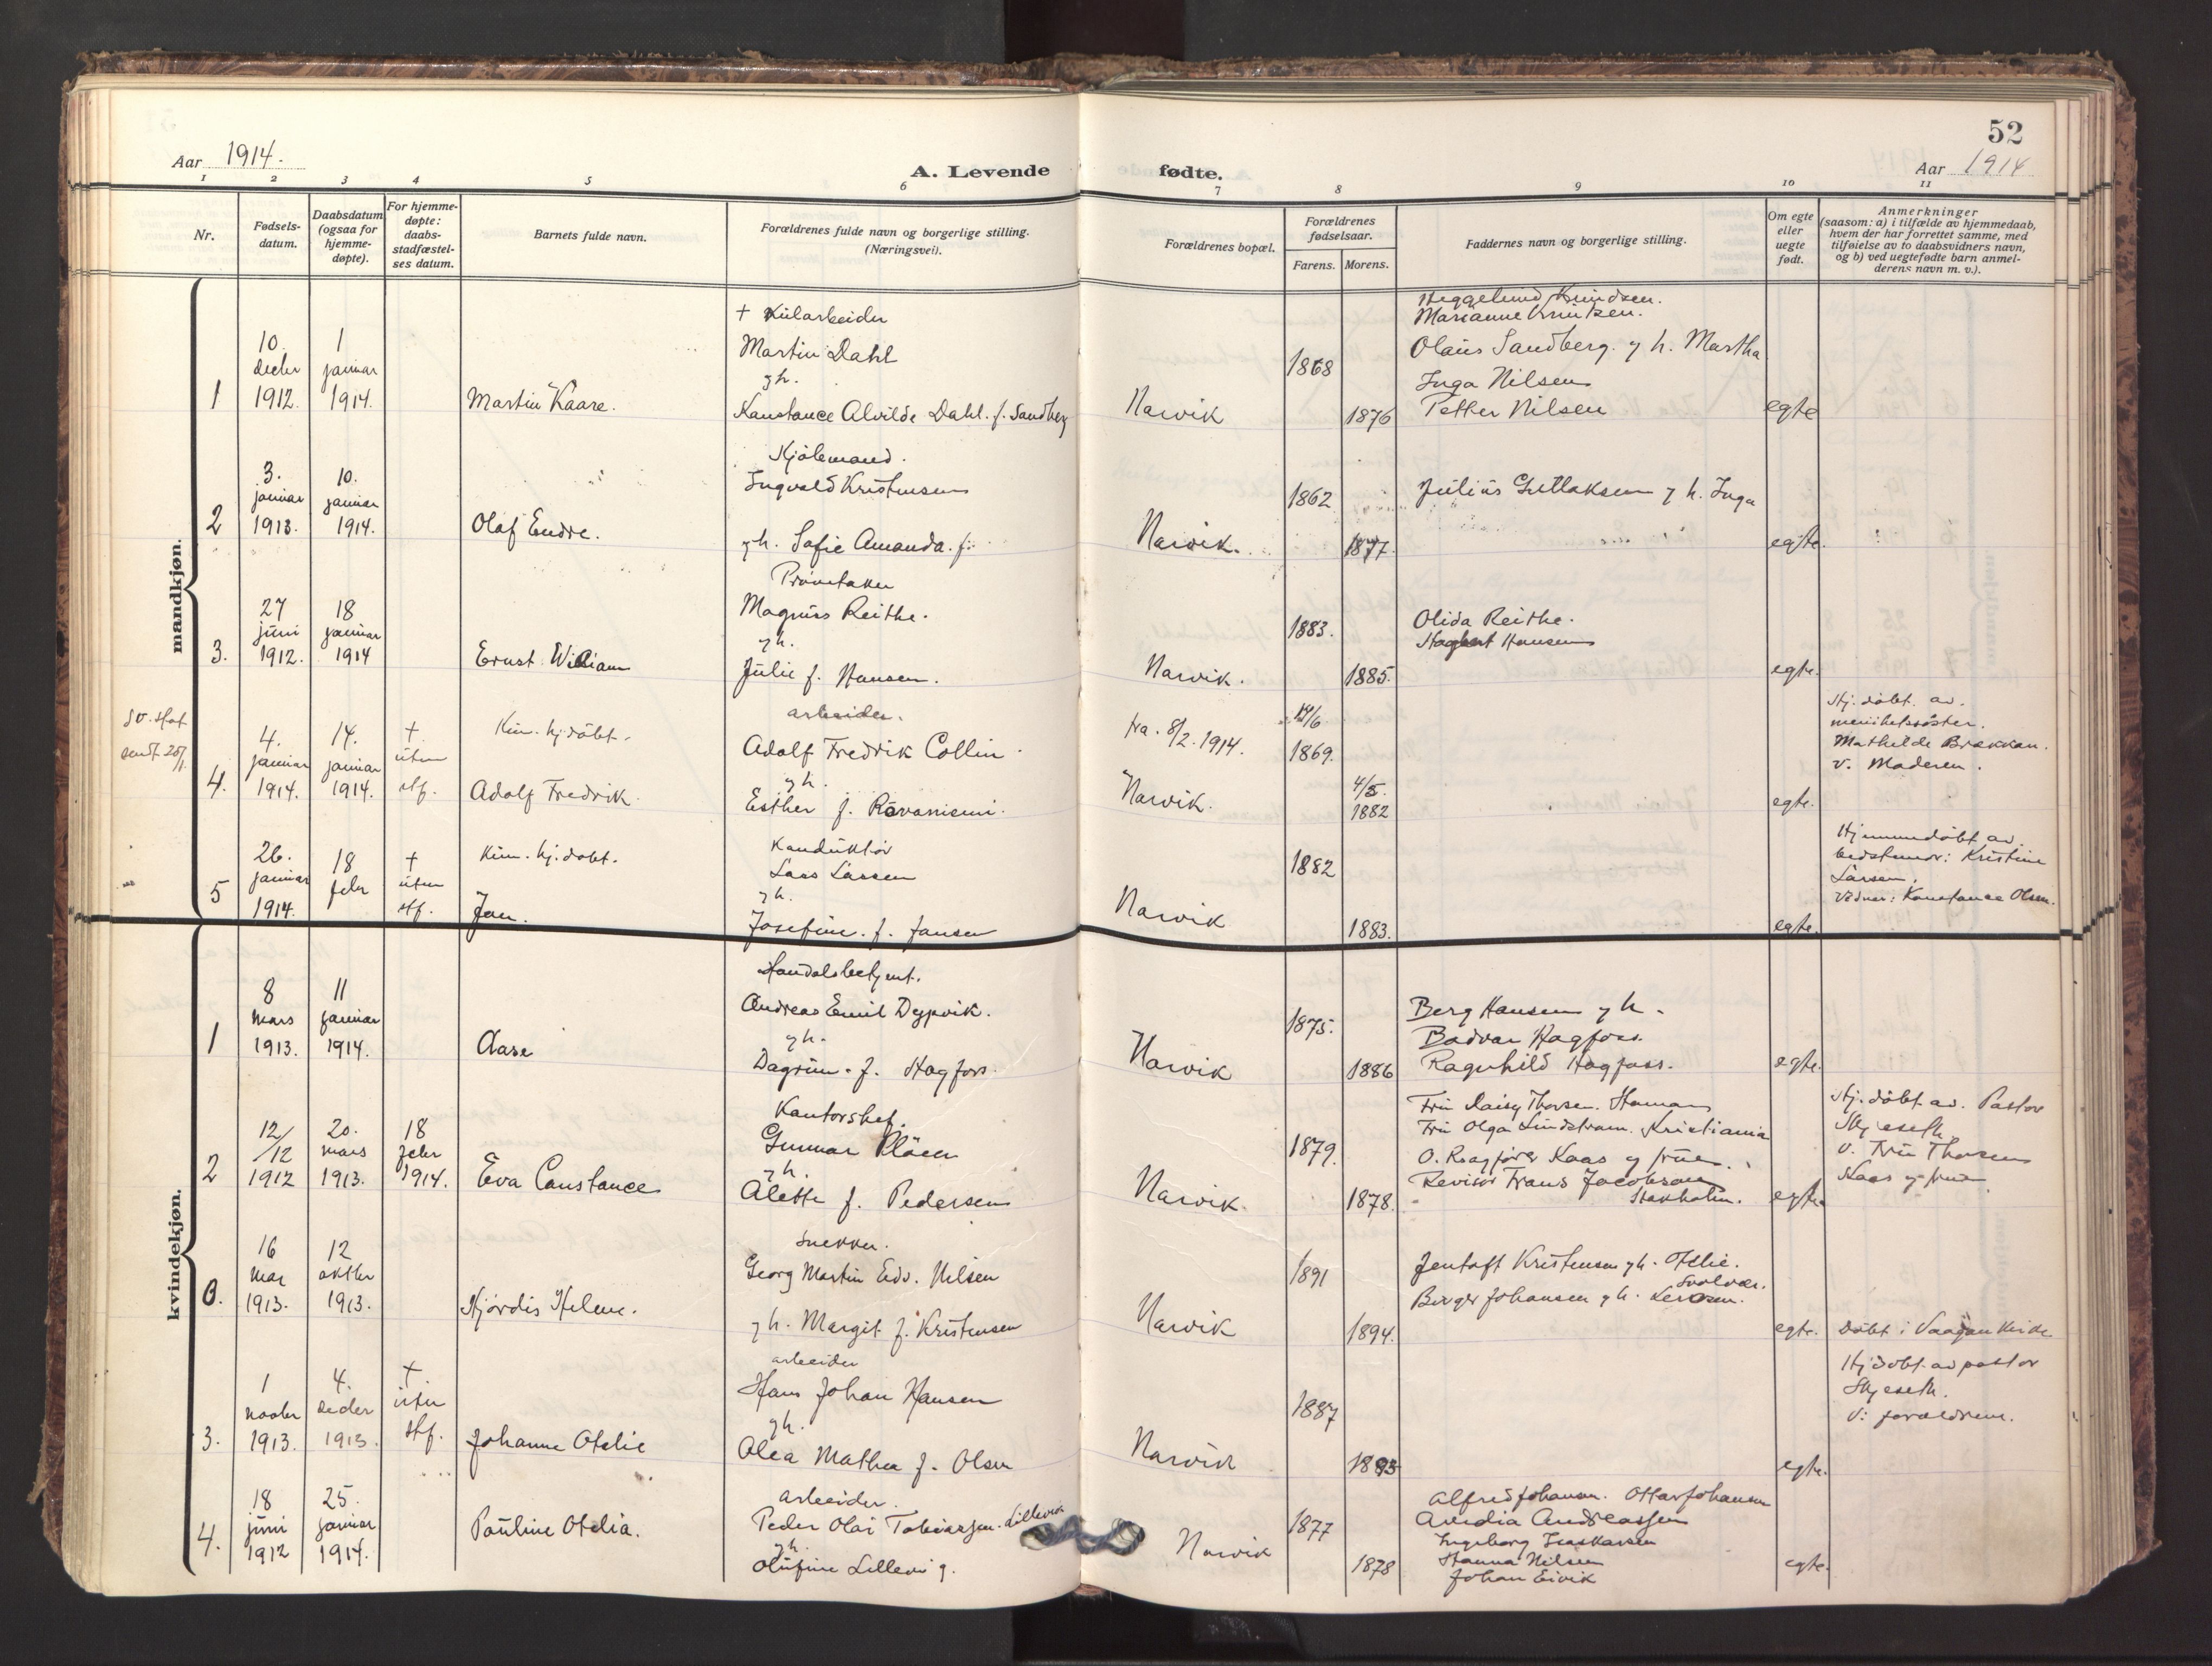 52
Aar 1914.
A. Levende
fødte.
Aar 1914
1 2 3 4 5 6 7 8 9 10 11
Nr.
Fødsels-
datum.
Daabsdatum
(ogsaa for
hjemme-
døpte).
For hjemme-
døpte:
daabs-
stadfæstel-
ses datum.
Barnets fulde navn.
Forældrenes fulde navn og borgerlige stilling.
(Næringsvei).
Forældrenes bopæl.
Forældrenes
fødselsaar.
Farens. Morens.
Faddernes navn og borgerlige stilling.
Om egte
eller
uegte
født.
Anmerkninger
(saasom: a) i tilfælde av hjemmedaab,
hvem der har forrettet samme, med
tilføielse av to daabsvidners navn,
og b) ved uegtefødte barn anmel-
derens navn m. v.).
mandkjøn.
1
10.
decbr
1912.
1
januar
1914.
Martin Kaare.
+ Kularbeider
Martin Dahl
g h.
Konstance Alvilde Dahl. f. Sandberg
Narvik
1868
1876
Heggelund Knudsen.
Marianne Knutsen.
Olaus Sandberg. g h. Martha
Inga Nilsen
Petter Nilsen
egte
2
3.
januar
1913.
10.
januar
1914.
Olaf Endre.
Ingvald Kristensen
g h. Sofie Amanda. f.
Narvik.
1862
1877.
Julius Gullaksen g h. Inga
egte.
3.
27
juni
1912.
18
januar
1914
Ernst William
Prøvetaker
Magnus Reithe.
g h.
Julie f. Hansen.
Narvik.
1883.
1885.
Olida Reithe.
Hagbart Hansen
egte.
4.
4.
januar
1914.
14.
januar
1914.
+
uten
stf.
Kun. hj. døbt.
Adolf Fredrik
arbeider.
Adolf Fredrik Collin
g h.
Esther f. Rovaniemi.
fra. 8/2. 1914.
Narvik.
14/6.
1869.
4/5.
1882
egte.
Hj. døbt. av.
menihetssøster.
Mathilde Brækkan.
v. Moderen.
5
26.
januar
1914.
18
febr
+
uten
stf.
Kun. hj. døbt.
Jan.
Konduktør
Lars Larsen
g h.
Josefine. f. Jansen
Narvik
1882
1883.
egte.
Hjemmedøbt av
bedstemor: Kristine
Larsen.
Vidner: Konstance Olsen.
kvindekjøn.
1
8
mars
1913.
11
januar
1914.
Aase
Handelsbetjent.
Andreas Emil Dypvik.
g h.
Dagrun. f. Hagfors.
Narvik
1875.
1886
Berg Hansen g h.
Bodvar Hagfoss.
Ragnhild Hagfoss.
egte.
2
12/
/12
1912
20.
mars
1913.
18
febr
1914.
Eva Constance
Kontorshef.
Gunnar Pløen
g h.
Alette f. Pedersen
Narvik.
1879.
1878.
Fru Daisy Thorsen. Hamar
Fru Olga Lindstrøm. Kristiania
O. Ragfører Kaas og frue.
Revisor Frans Jacobson
Stokholm.
egte.
Hj. døbt. av. Pastor
Skjeseth
v. Fru Thorsen
Kaas og frue
0.
16
mar
1913.
12
oktbr
1913.
Hjørdis Helene.
Snekker.
Georg Martin Edv. Nilsen
g h. Margit f. Kristensen
Narvik
1891
1894.
Jentoft Kristensen g h. Otelie.
Svolvær.
Birger Johansen g h.
egte.
Døbt i Vaagan Kirke
3.
1
novbr
1913.
4.
decbr
1913.
+.
uten
stf.
Johanne Otelie
arbeider
Hans Johan Hansen
g h.
Alea Mathea f. Olsen
Narvik
1887
1883
egte.
Hj døbt. av pastor
Skjeseth.
v: forældrene.
4.
18
juni
1912
25.
januar
1914.
Pauline Otelia.
arbeider.
Peder Olai Tobiassen. Lillevik
g h.
Olufine Lillevig.
Narvik
1877
1878
Alfred Johansen. Ottar Johansen
Andreassen
Ingeborg Isaksen
Hanna Nilsen
Johan Eivik
egte.